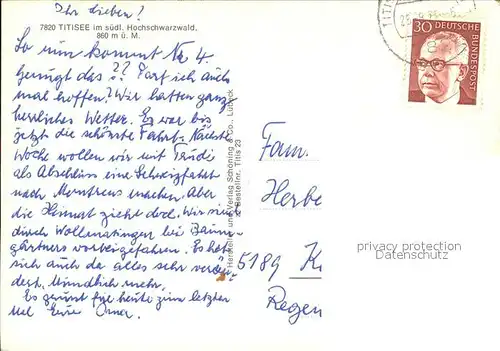 Ihr Lieben!
7820 TITISEE im südl. Hochschwarzwald.
860 m ü. M.
So nun kommt Nr 4.
genügt das?? Darf ich auch
mal hoffen? Wir hatten ganz
herrliches Wetter. Es war bis
jetzt die schönste Fahrt. Nächste
Woche wollen wir mit Trudi
als Abschluss eine Schweizfahrt
nach Montreux machen. Aber
die Heimat zieht doch. Wir sind
durch Wollmatingen bei Baum-
gärtners vorbeigefahren. Es hat
sich auch da alles sehr verän-
dert. Mündlich mehr.
Es grüsst Euch heute zum letzten
Mal Eure Oma.
Hersteller und Verlag Schöning & Co., Lübeck
Bestellnr. Titis 23
TITIS
30 DEUTSCHE BUNDESPOST
Fam.
Herbe
5189 K
Regen
privacy protection
Datenschutz